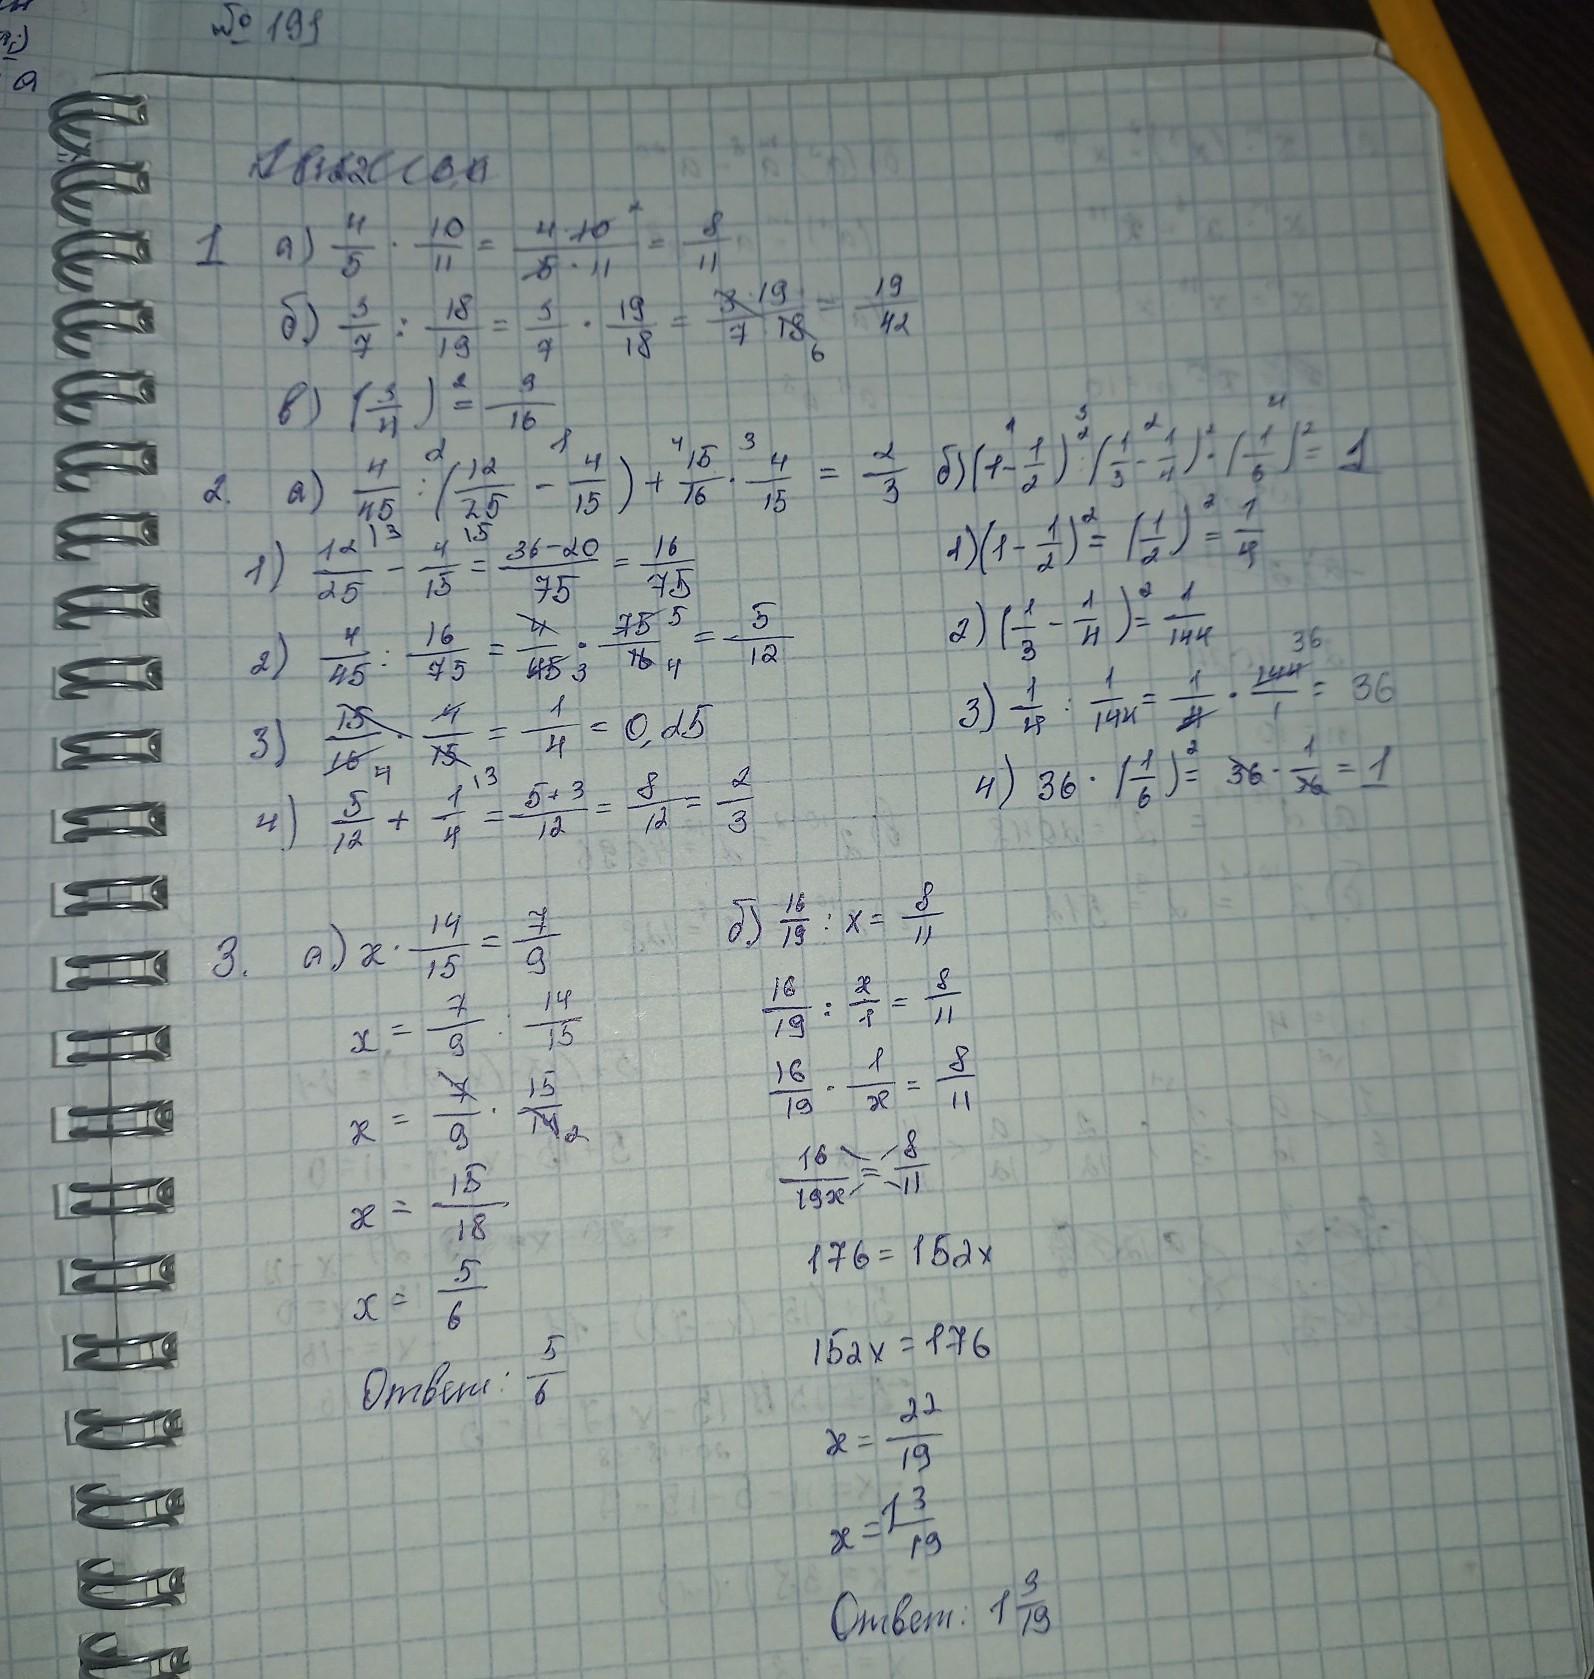 № 191
1 а) 4/5 · 10/11 = 4·10/5·11 = 8/11
б) 3/7 : 18/19 = 3/7 · 19/18 = 3·19/7·18 6 = 19/42
в) (3/4)² = 9/16
2. а) 4/45 : (12/25 - 4/15) + 15/16 · 4/15 = 2/3
б) (1 - 1/2)² : (1/3 - 1/4)² · (1/6)² = 1
1) 12/25 - 4/15 = 36-20/75 = 16/75
2) 4/45 : 16/75 = 4/45 3 · 75 5/16 4 = 5/12
3) 15/16 4 · 4/15 = 1/4 = 0,25
4) 5/12 + 1/4 = 5+3/12 = 8/12 = 2/3
1) (1 - 1/2)² = (1/2)² = 1/4
2) (1/3 - 1/4)² = 1/144
3) 1/4 : 1/144 = 1/4 · 144 36/1 = 36
4) 36 · (1/6)² = 36 · 1/36 = 1
3. а) x · 14/15 = 7/9
x = 7/9 : 14/15
x = 7/9 · 15/14 2
x = 15/18
x = 5/6
Ответ: 5/6
б) 16/19 : x = 8/11
16/19 : x/1 = 8/11
16/19 · 1/x = 8/11
16/19x = 8/11
176 = 152x
152x = 176
x = 22/19
x = 1 3/19
Ответ: 1 3/19